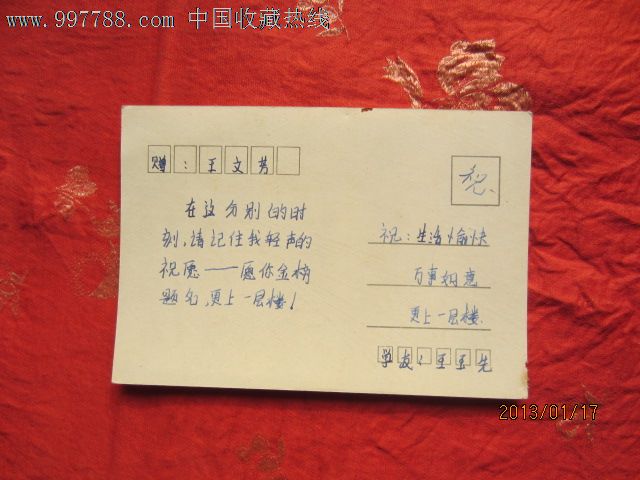 www.997788.com 中国收藏热线
赠：王文芳
在这分别的时
刻,请记住我轻声的
祝愿——愿你金榜
题名,更上一层楼!
祝：生活愉快
万事如意
更上一层楼.
学友：王玉先
2013/01/17